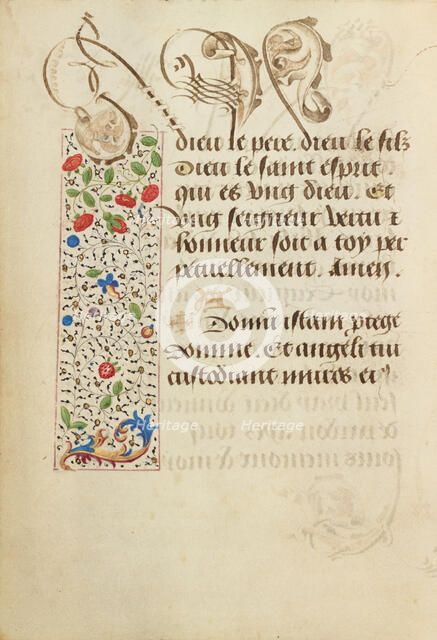 dieu le pere. dieu le filz
Dieu le saint esprit
qui es vng dieu. Et
vng seigneur vertu &
honneur soit a toy per
petuellement. Amen.
Domu istam
Domine. Et angeli tui
custodiant muros et
Heritage
Heritage
Heritage
Heritage
Heritage